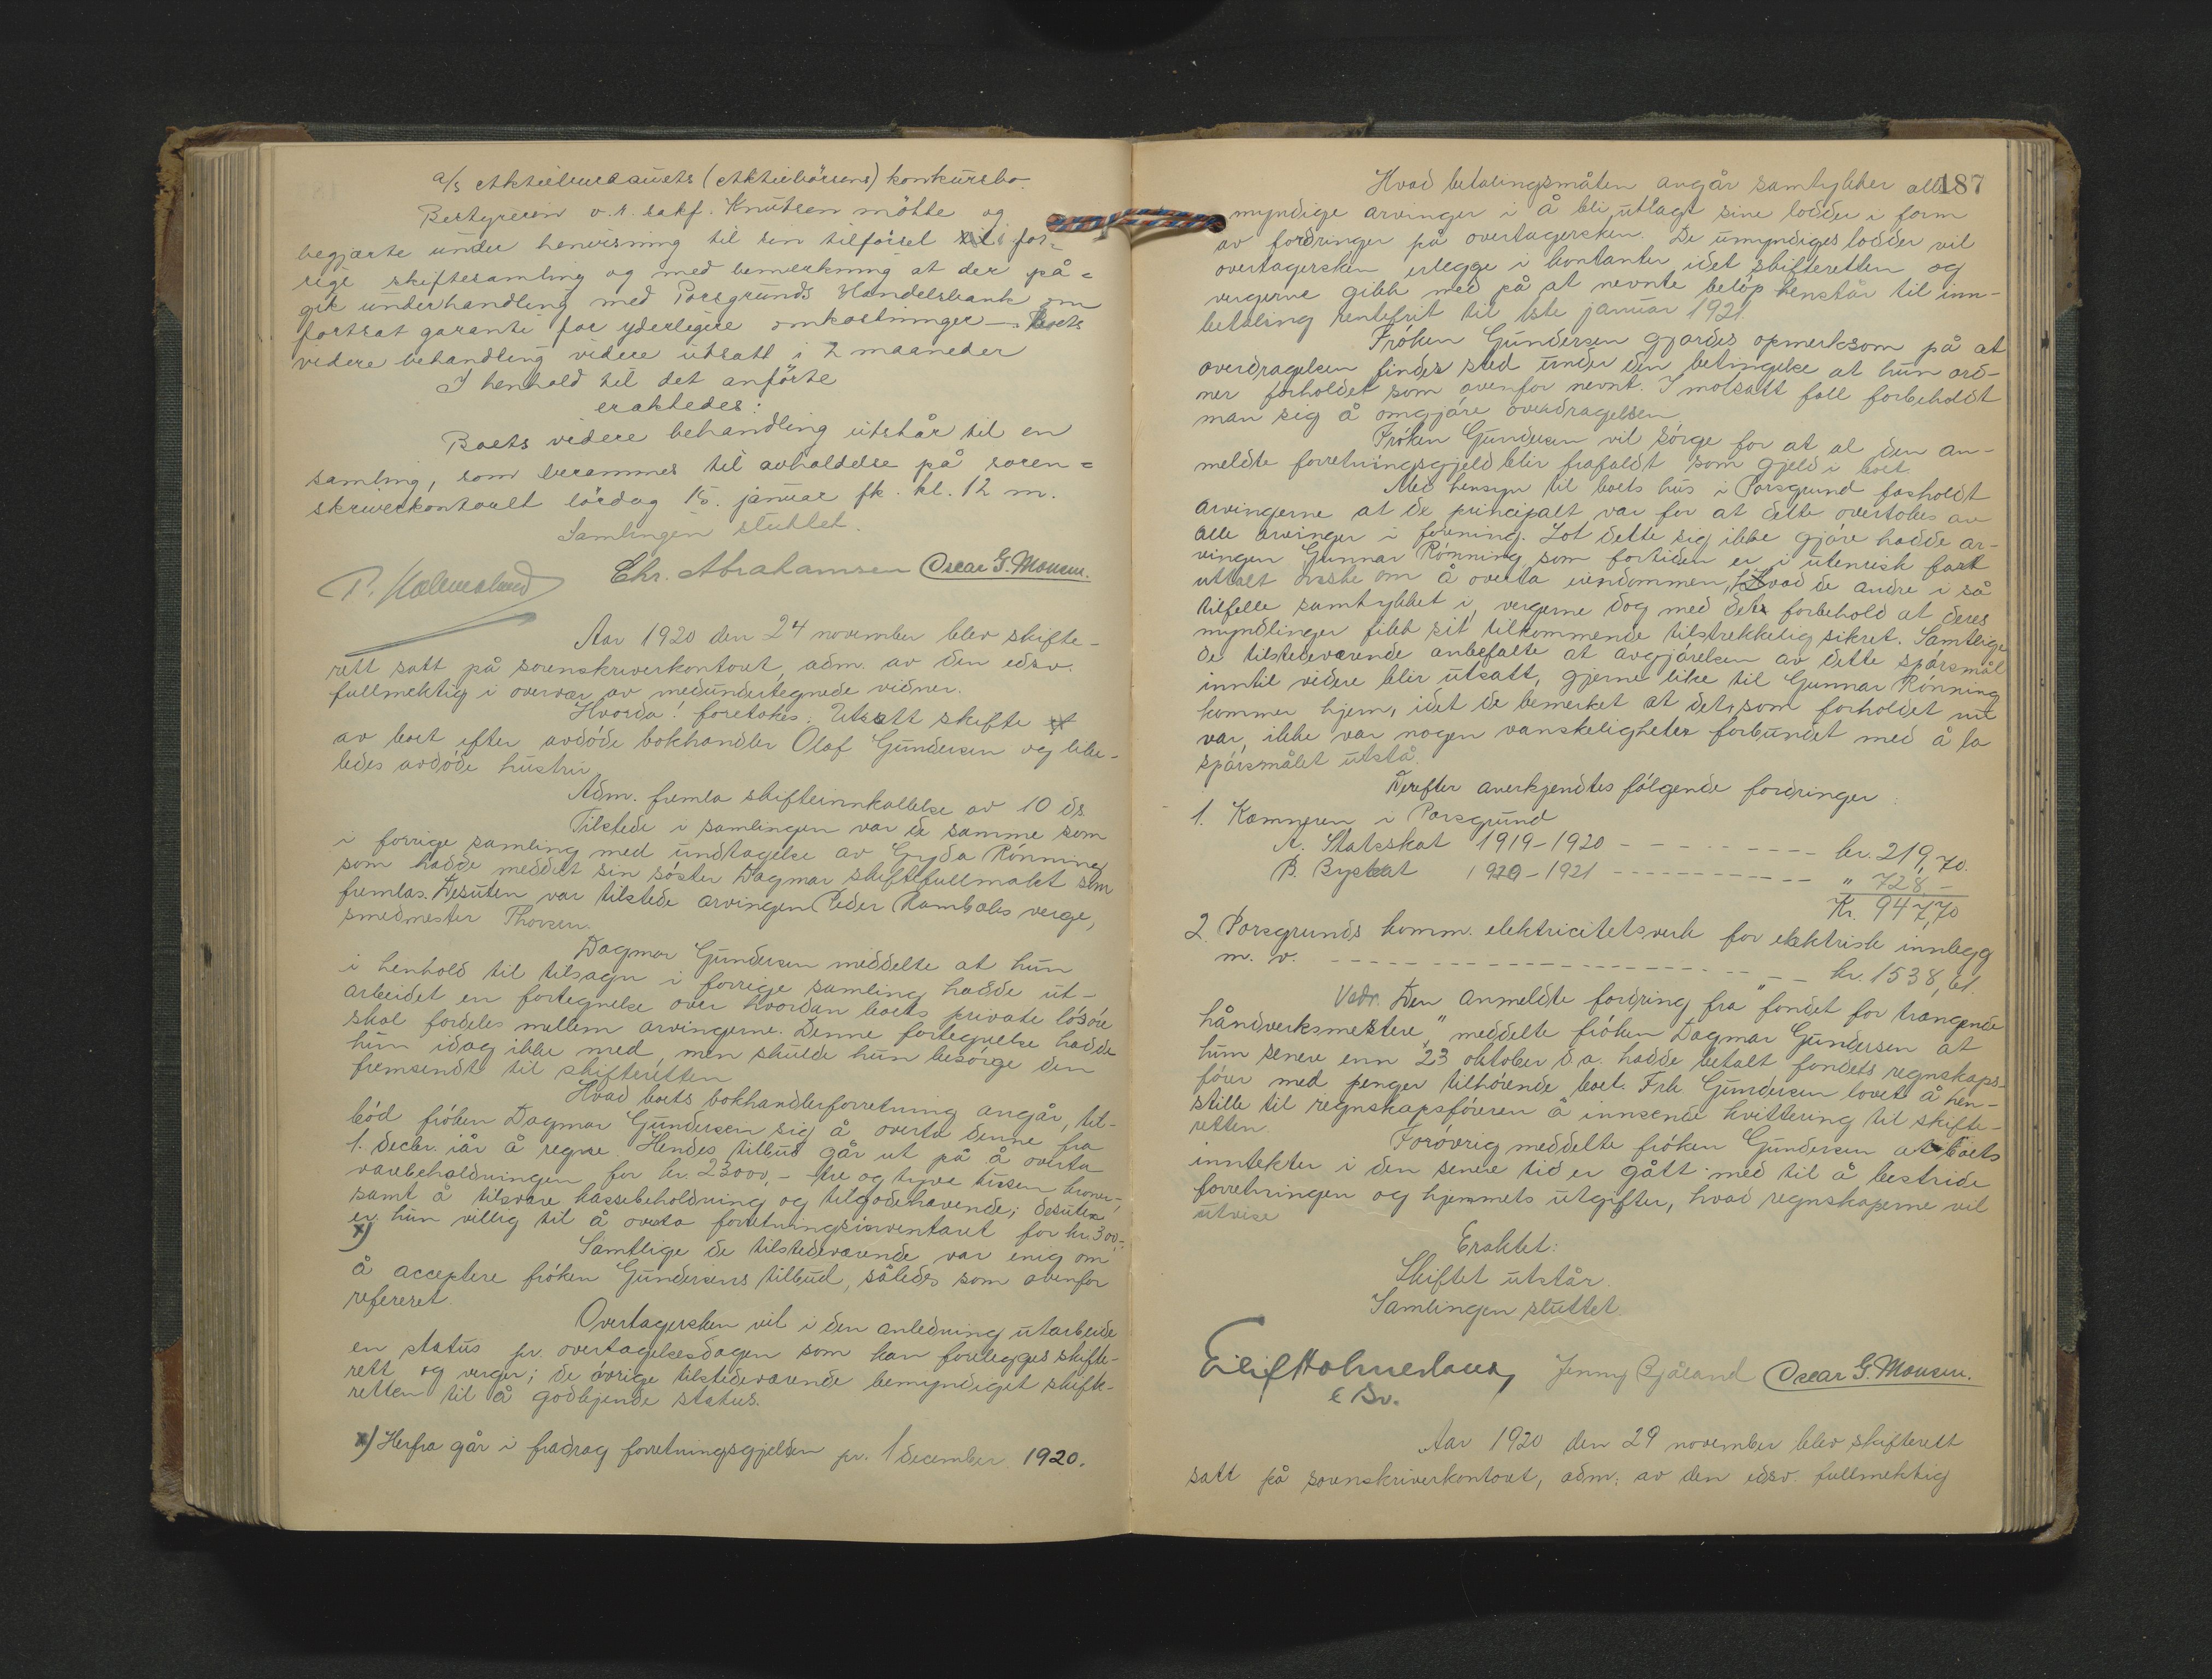 a/s Aktiebureauets (Aktiebörsens) konkursbo.
Bestyreren o.r. sakf. Knutsen mötte og
begjærte under henvisning til sin tilförsel i for-
rige skiftesamling og med bemerkning at der på-
gik underhandling med Porsgrunds Handelsbank om
fortsat garanti for yderligere omkostninger – Boets
videre behandling videre utsatt i 2 maaneder
I henhold til det anförte
eraktedes:
Boets videre behandling utstår til en
samling, som berammes til avholdelse på soren=
skriverkontoret lördag 15. januar fk. kl. 12 m.
Samlingen sluttet.
P. Holmesland Chr. Abrahamsen Oscar G. Monsen.
Aar 1920 den 24 november blev skifte-
rett satt på sorenskriverkontoret, adm. av den edsv.
fullmektig i overvær av medundertegnede vidner.
Hvorda! foretokes: Utsatt skifte
av boet efter avdöde bokhandler Olaf Gundersen og like-
ledes avdöde hustru
Adm. fremla skifteinnkallelse av 10 ds.
Tilstede i samlingen var de samme som
i forrige samling med undtagelse av Gyda Rönning
som hadde meddelt sin söster Dagmar skiftefullmakt som
fremlas. Desuten var tilstede arvingen Peder Rambøls verge,
smedmester Thorsen.
Dagmar Gundersen meddelte at hun
i henhold til tilsagn i forrige samling hadde ut-
arbeidet en fortegnelse over hvordan boets private lösöre
skal fordeles mellem arvingerne. Denne fortegnelse hadde
hun idag ikke med, men skulde hun besörge den
fremsendt til skifteretten
Hvad boets bokhandlerforretning angår, til-
böd fröken Dagmar Gundersen sig å overta denne fra
1. decbr. iår å regne. Hendes tilbud går ut på å overta
varebeholdningen for kr 23000,- tre og tyve tusen kroner,-
samt å tilsvare kassebeholdning og tilgodehavende; desuten
er hun villig til å overta forretningsinventaret for kr. 300,-
x)
Samtlige de tilstedeværende var enig om
å acceptere fröken Gundersens tilbud, således som ovenfor
referert.
Overtagersken vil i den anledning utarbeide
en status pr. overtagelsesdagen som kan forelegges skifte-
rett og verger; de övrige tilstedeværende bemyndiget skifte-
retten til å godkjende status.
x) Herfra går i fradrag forretningsgjelden pr. 1 december 1920.
187
Hvad betalingsmåten angår samtykker alle
myndige arvinger i å bli utlagt sine lodder i form
av fordringer på overtagersken. De umyndiges lodder vil
overtagersken erlegge i kontanter idet skifteretten og
vergerne gikk med på at nevnte belöp henstår til inn-
betaling rentefrit til 1ste januar 1921
Fröken Gundersen gjordes opmerksom på at
overdragelsen finder sted under den betingelse at hun ord-
ner forholdet som ovenfor nevnt. I motsatt fall forbeholdt
man sig å omgjöre overdragelsen
Fröken Gundersen vil sörge for at al den an-
meldte forretningsgjeld blir frafaldt som gjeld i boet.
Med hensyn til boets hus i Porsgrund forholdt
arvingerne at de principalt var for at dette overtokes av
alle arvinger i forening. Lot dette sig ikke gjöre hadde ar-
vingen Gunnar Rönning som fortiden er i utenrisk fart
uttalt önske om å overta eiendommen, hvad de andre i så
tilfelle samtykket i, vergerne dog med det forbehold at deres
myndlinger fikk sit tilkommende tilstrekkelig sikret. Samtlige
de tilstedeværende anbefalte at avgjörelsen av dette spörsmål
inntil videre blir utsatt, gjerne like til Gunnar Rönning
kommer hjem, idet de bemerket at det, som forholdet nu
var, ikke var nogen vanskeligheter forbundet med å la
spörsmålet utstå.
Derefter anerkjendtes fölgende fordringer:
1. Kæmneren i Porsgrund
A. Statsskat 1919-1920 – – – – – – – – kr. 219,70.
B. Byskat 1920-1921 – – – – – – – – " 728 –
Kr. 947,70
2. Porsgrunds komm. elektricitetsverk for elektrisk innlegg
m. v. – – – – – – – – – – – – – – – – kr. 1538,61.
Vedr. Den anmeldte fordring fra "fondet for trængende
håndverksmestere", meddelte fröken Dagmar Gundersen at
hun senere enn 23 oktober d a. hadde betalt fondets regnskaps-
förer med penger tilhörende boet. Frk Gundersen lovet å hen-
stille til regnskapsföreren å innsende kvittering til skifte-
retten.
Forövrig meddelte fröken Gundersen at boets
inntekter i den senere tid er gått med til å bestride
forretningen og hjemmets utgifter, hvad regnskaperne vil
utvise
Eraktet:
Skiftet utstår.
Samlingen sluttet.
Eilif Holmesland Jenny Bjåland Oscar G. Monsen.
e Bv.
Aar 1920 den 29 november blev skifterett
satt på sorenskriverkontoret, adm. av den edsv. fullmektig